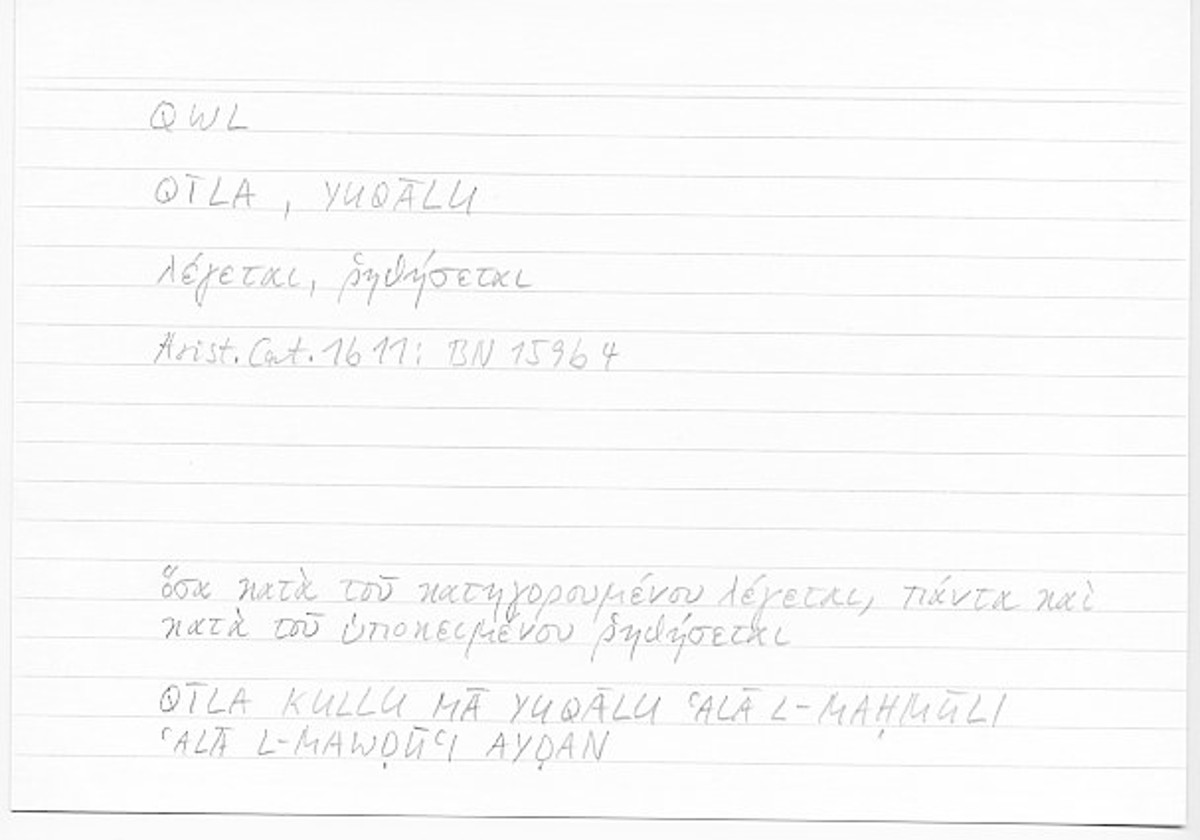 QWL
QĪLA , YUQĀLU
λέγεται, ῥηθήσεται
Arist. Cat. 1b11: BN 159b4
ὅσα κατὰ τοῦ κατηγορουμένου λέγεται, πάντα καὶ
κατὰ τοῦ ὑποκειμένου ῥηθήσεται
QĪLA KULLU MĀ YUQĀLU ʿALĀ L-MAḤMŪLI
ʿALĀ L-MAWḌŪʿI AYḌAN